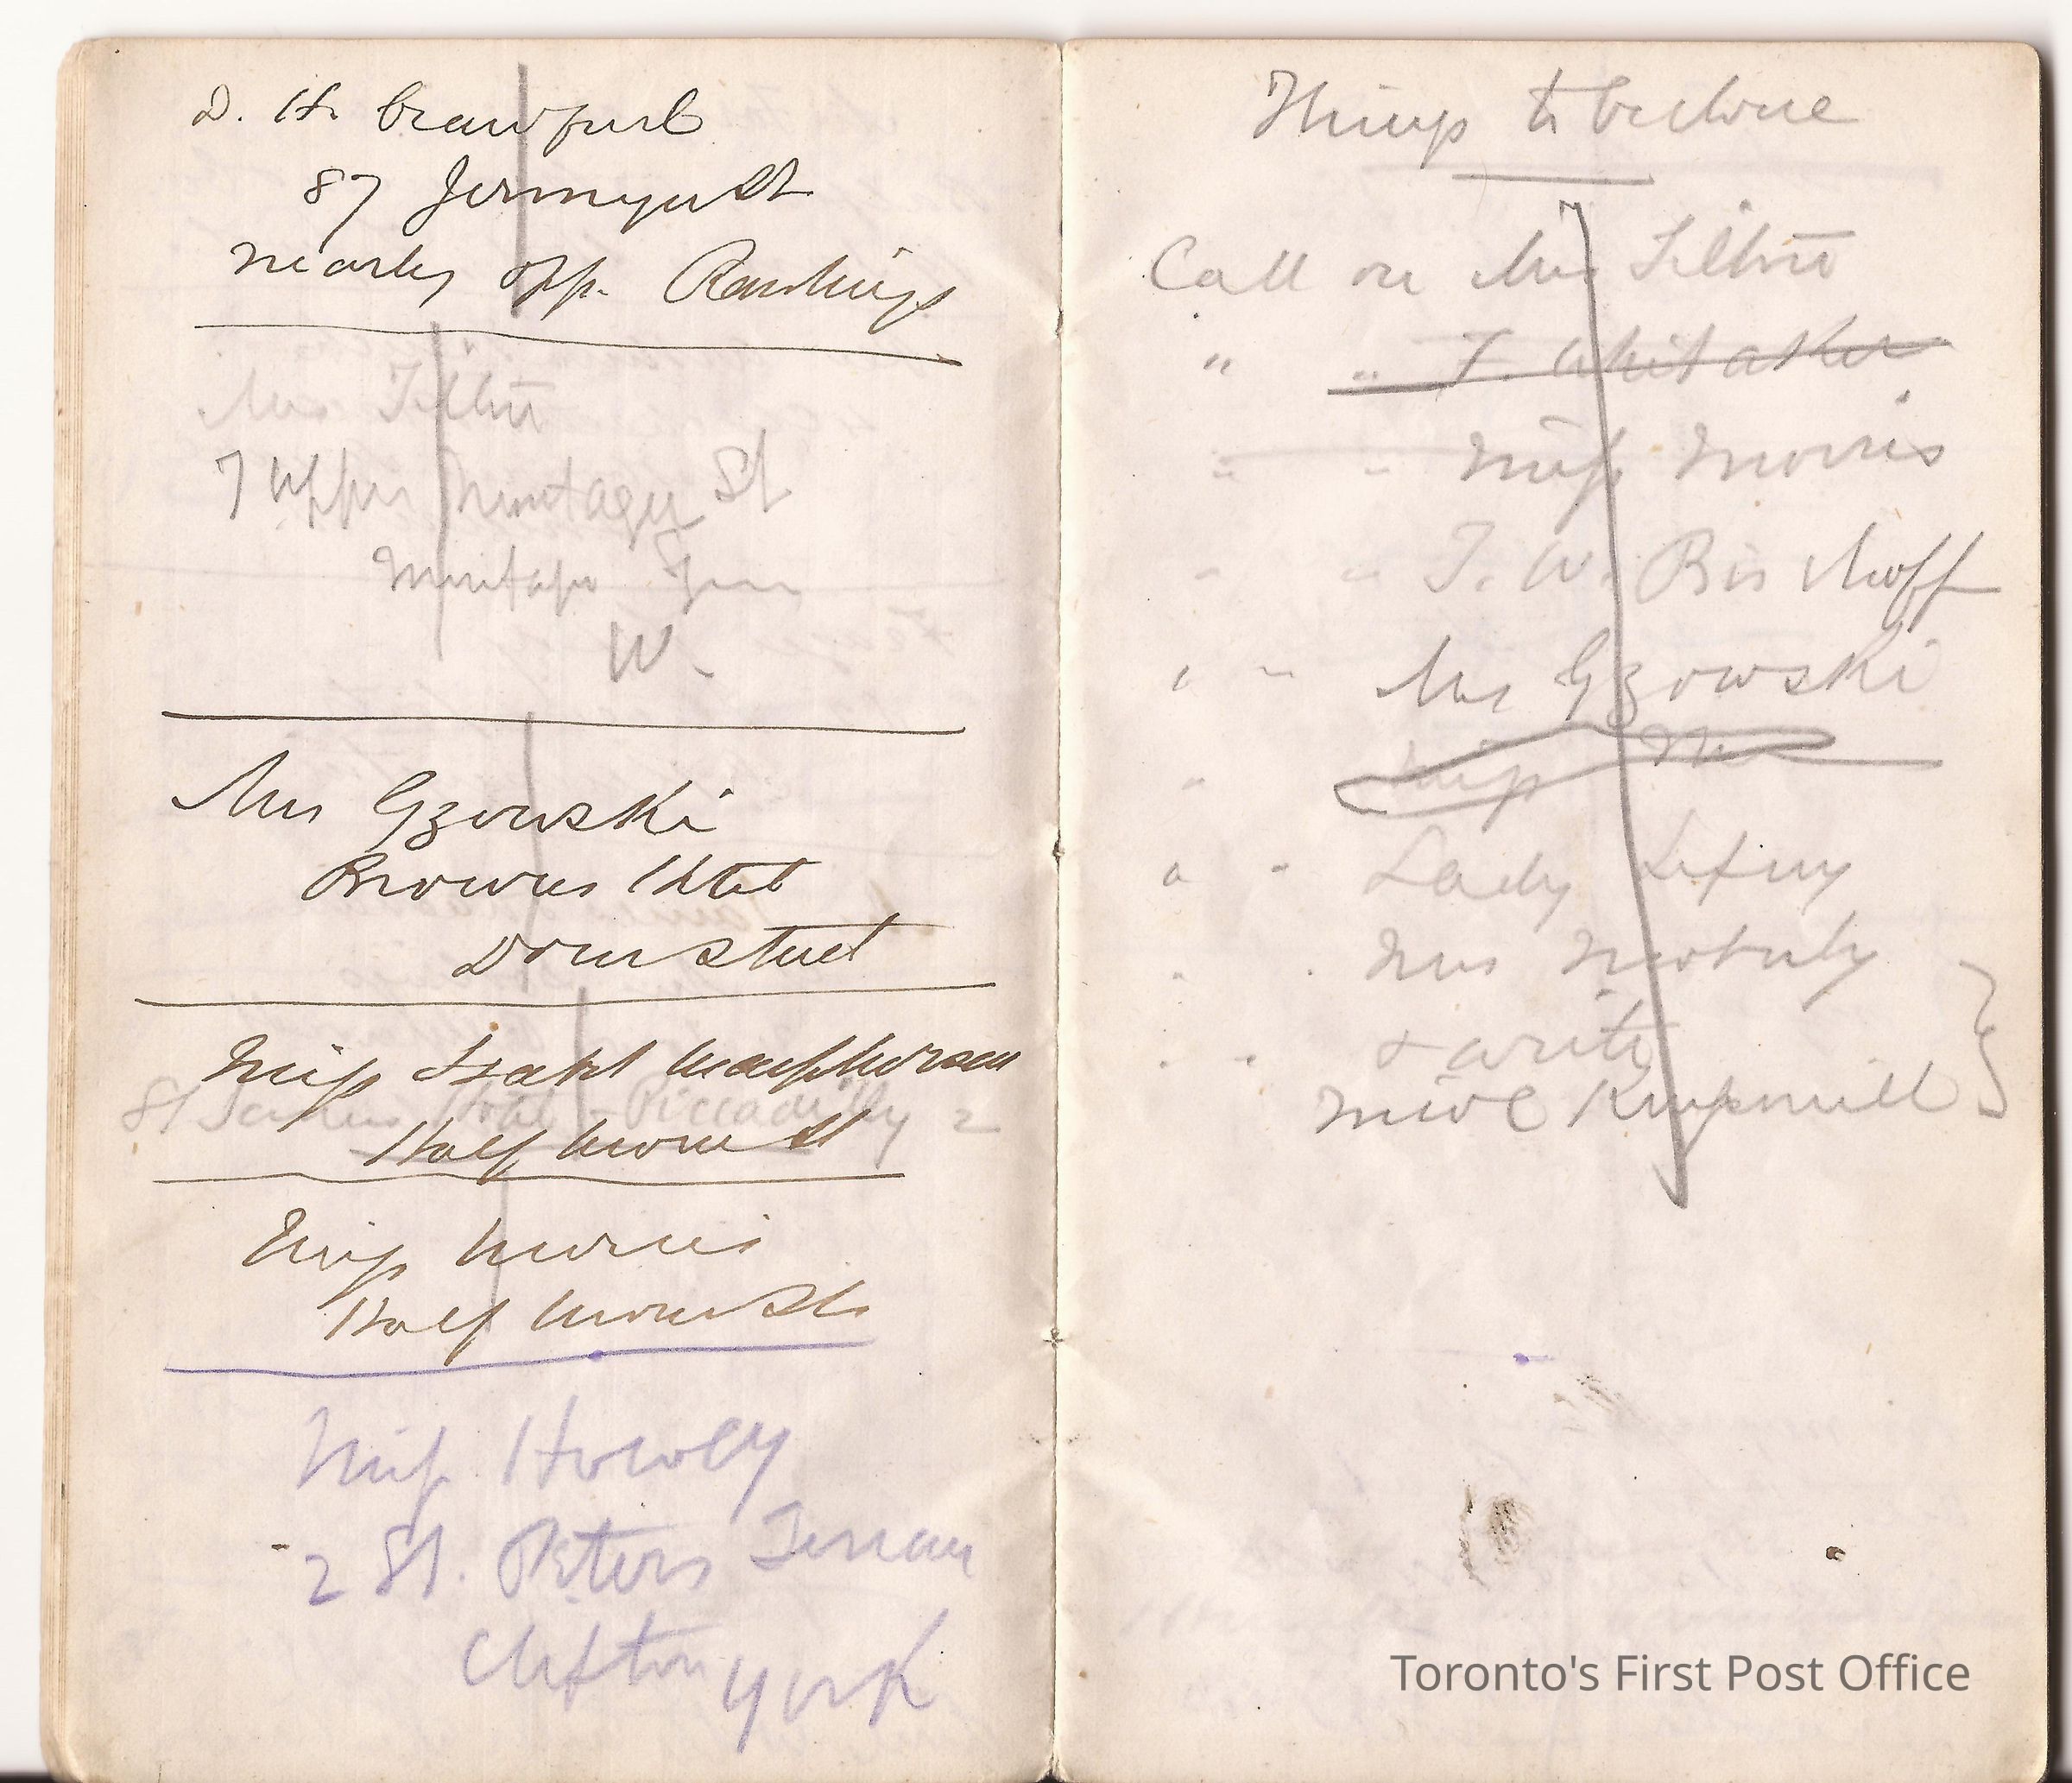 D. H. Crawford
87 Jermyn St
nearly opp. Rawlings
Mrs Tilstn
7 Upper Montagu St
Montagu Sqr
W.
Mrs Gzowski
Browns Hotel
Dover Street
Miss Isabel Macpherson
St James Hotel - Piccadilly
Half Moon St
Miss Morris
Half Moon St
Miss Howley
2 St. Peters Terrace
Clifton York
Things to be done
Call on Mrs
" " T. Whitaker
" " Miss Morris
" " T. W. Bischoff
" " Mrs Gzowski
" Miss
" " Lady Lefroy
" " Mrs
" " & write
Kingsmill
Toronto's First Post Office